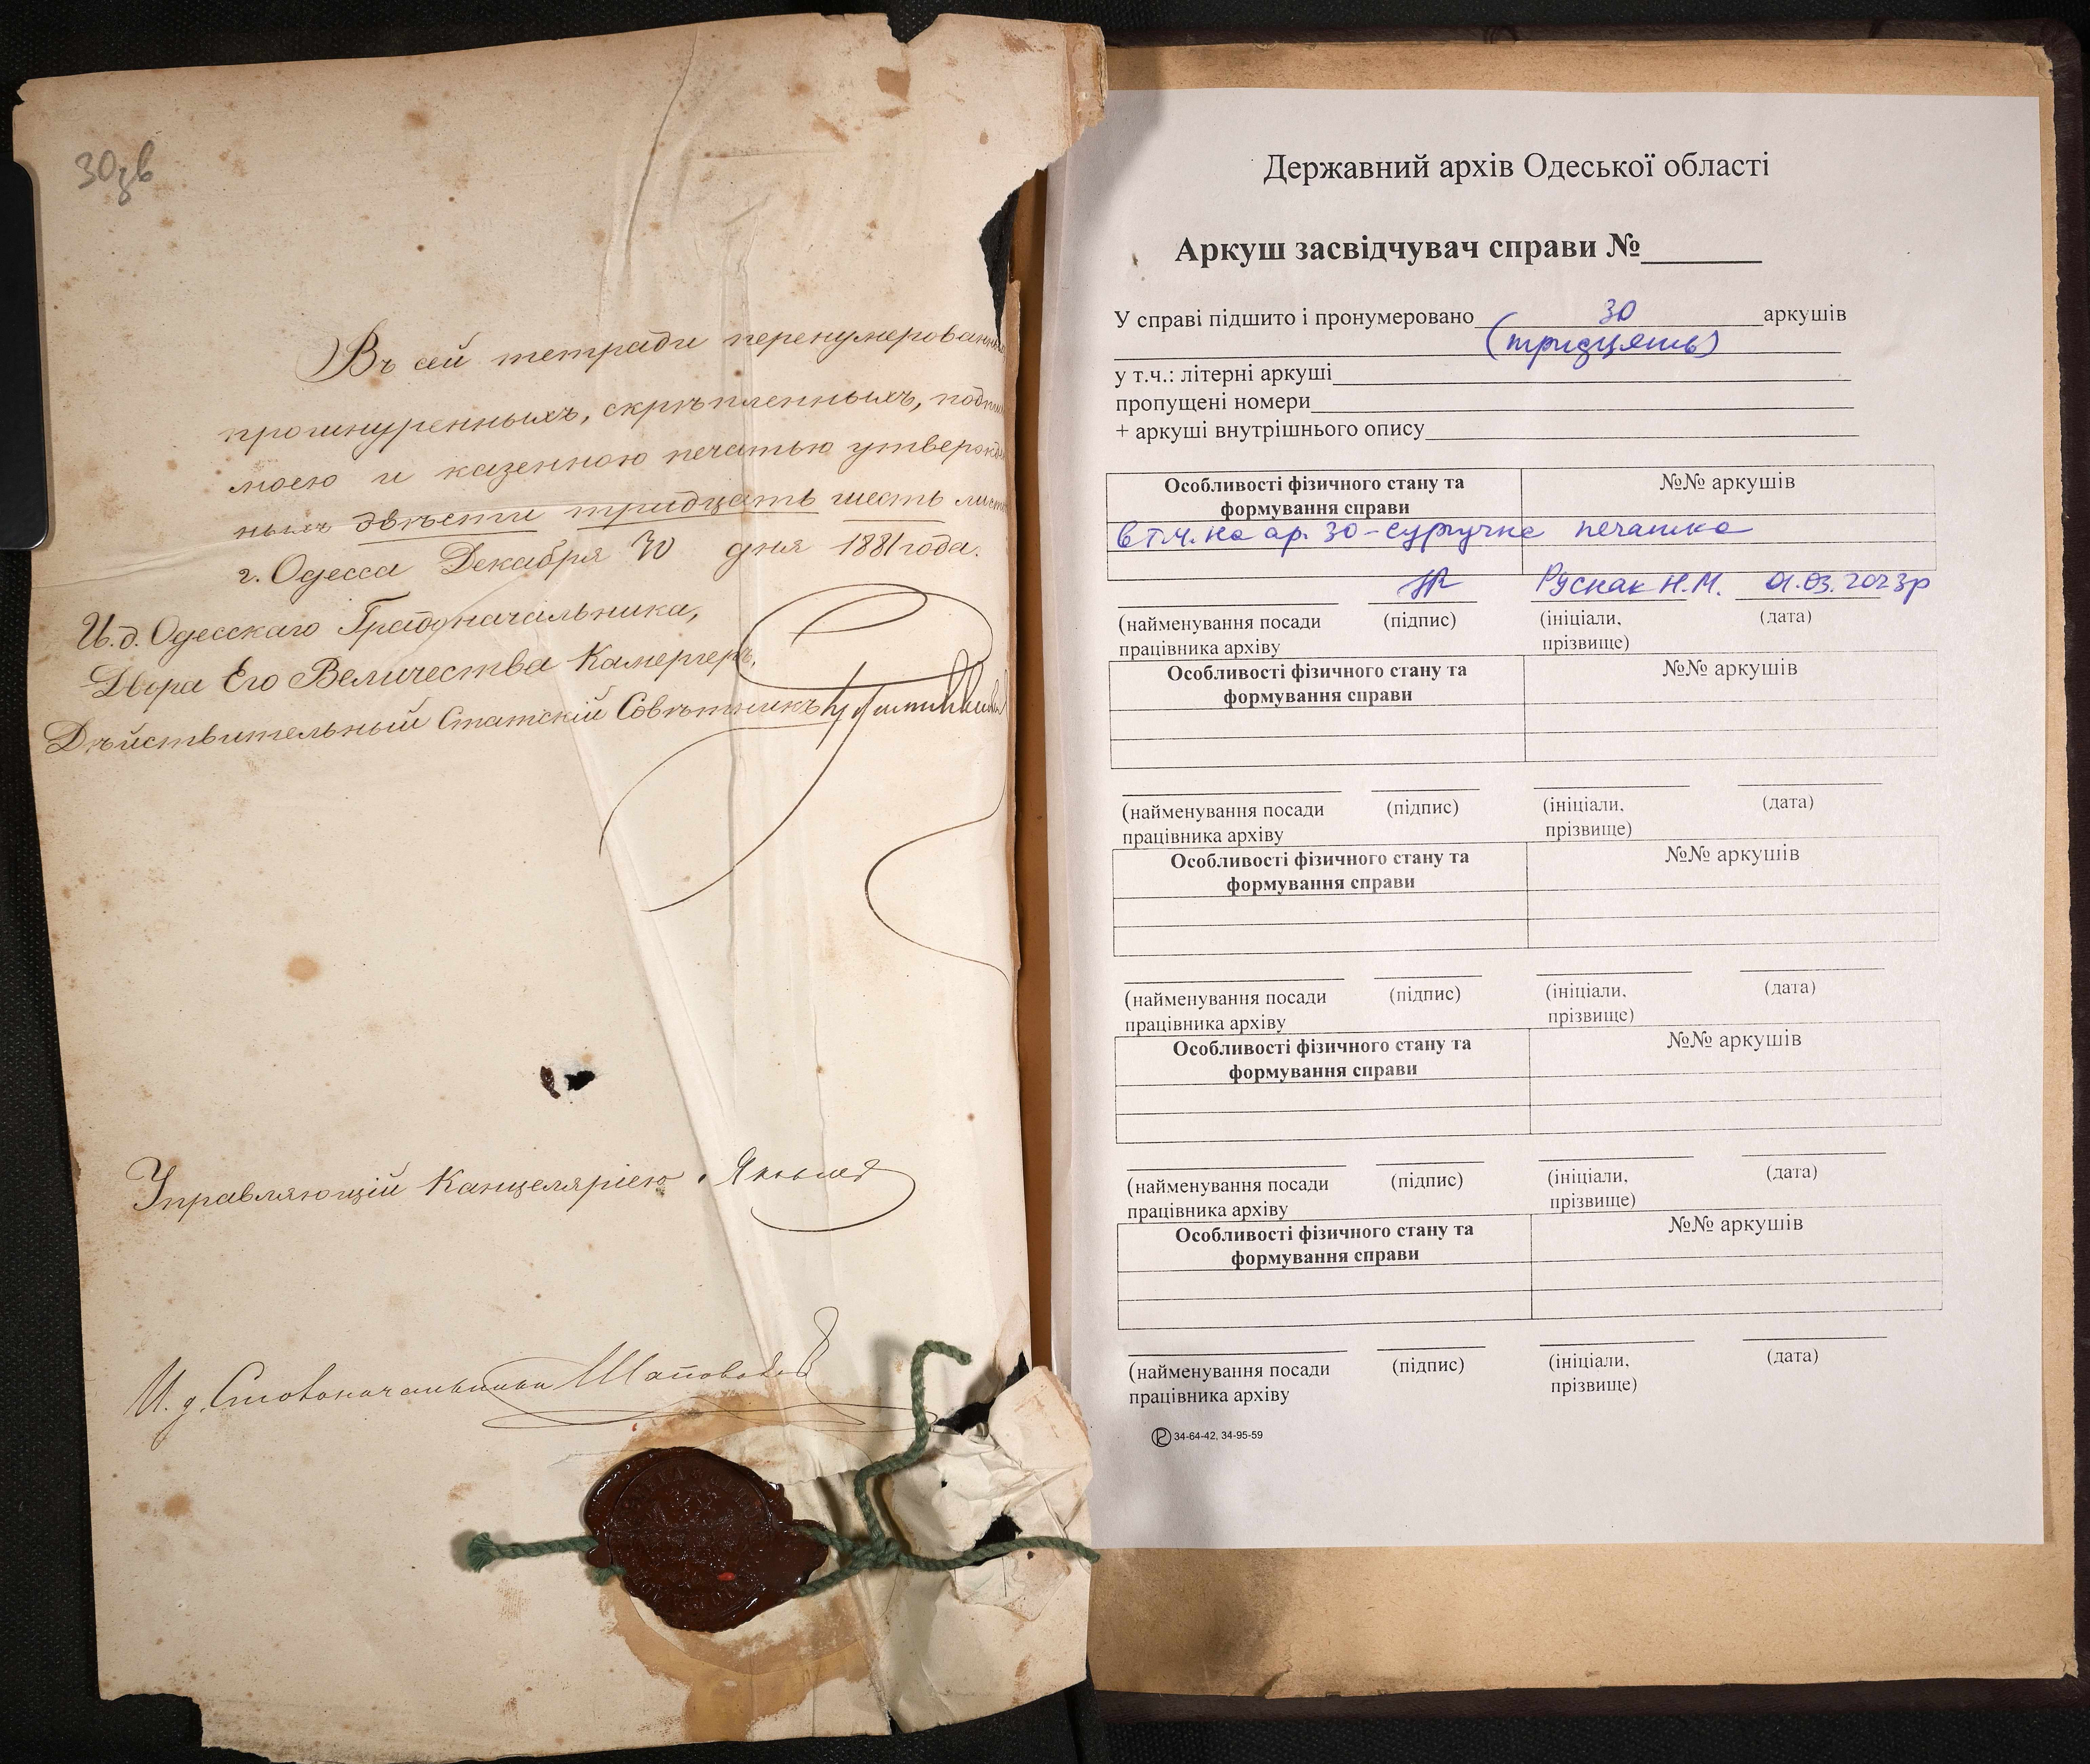 30зв
Въ сей тетради перенумерованны
прошнуренныхъ, скрѣпленныхъ, подпи
моею и казенною печатью утвержде
ныхъ двѣсти тридцать шесть лист
г. Одесса Декабря 30 дня 1881 года.
И.д. Одесскаго Градоначальника,
Двора Его Величества Камергеръ,
Дѣйствительный Статскій Совѣтникъ
Управляющій Канцеляріею
И. д. Столоначальника Шаповалов
Державний архів Одеської області
Аркуш засвідчувач справи №______
У справі підшито і пронумеровано 30 аркушів
(тридцять)
у т.ч.: літерні аркуші
пропущені номери
+ аркуші внутрішнього опису
Особливості фізичного стану та №№ аркушів
формування справи
в т.ч. на ар. 30 - сургучна печатка
Руснак Н.М. 01.03.2023р
(найменування посади (підпис) (ініціали, (дата)
працівника архіву прізвище)
Особливості фізичного стану та №№ аркушів
формування справи
(найменування посади (підпис) (ініціали, (дата)
працівника архіву прізвище)
Особливості фізичного стану та №№ аркушів
формування справи
(найменування посади (підпис) (ініціали, (дата)
працівника архіву прізвище)
Особливості фізичного стану та №№ аркушів
формування справи
(найменування посади (підпис) (ініціали, (дата)
працівника архіву прізвище)
Особливості фізичного стану та №№ аркушів
формування справи
(найменування посади (підпис) (ініціали, (дата)
працівника архіву прізвище)
34-64-42, 34-95-59